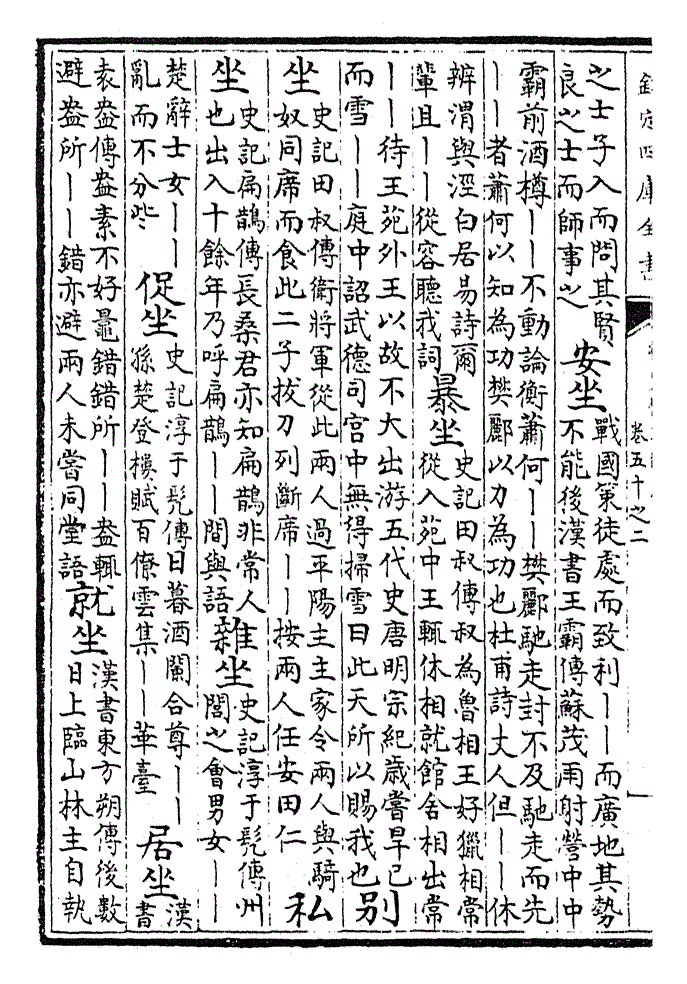 欽定四庫全書
卷五十之二
之士子入而問其賢
良之士而師事之
安坐
戰國策徒處而致利——而廣地其勢
不能後漢書王霸傳蘇茂雨射營中中
霸前酒樽——不動論衡蕭何——樊酈馳走封不及馳走而先
——者蕭何以知為功樊酈以力為功也杜甫詩丈人但——休
辨渭與涇白居易詩爾
輩且——從容聽我詞
暴坐
史記田叔傳叔為魯相王好獵相常
從入苑中王輒休相就館舍相出常
——待王苑外王以故不大出游五代史唐明宗紀歲嘗旱已
而雪——庭中詔武德司宫中無得掃雪曰此天所以賜我也
別
坐
史記田叔傳衛將軍從此兩人過平陽主主家令兩人與騎
奴同席而食此二子拔刀列斷席——按兩人任安田仁
私
坐
史記扁鵲傳長桑君亦知扁鵲非常人
也出入十餘年乃呼扁鵲——間與語
雜坐
史記淳于髡傳州
閭之會男女——
楚辭士女——
亂而不分些
促坐
史記淳于髡傳日暮酒闌合尊——
孫楚登樓賦百僚雲集——華臺
居坐
漢
書
袁盎傳盎素不好鼂錯錯所——盎輒
避盎所——錯亦避兩人未嘗同堂語
就坐
漢書東方朔傳後數
日上臨山林主自執